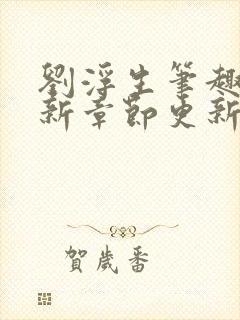 劉浮生筆趣
新章節更新
賀歲番